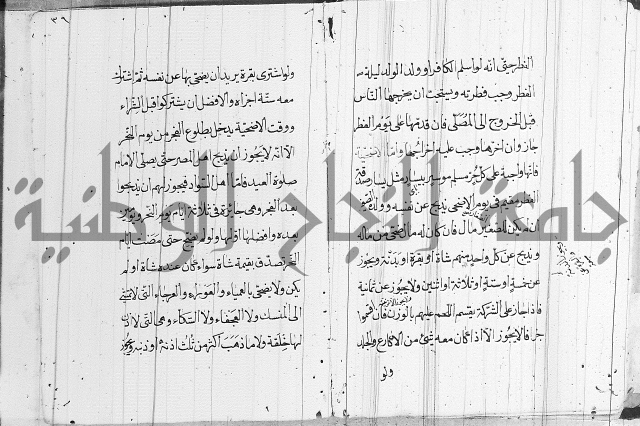 الفطر حتى انه لو اسلم الكافر او ولد الولد ليلة
الفطر وجب فطرته ويستحب ان يخرجها الناس
قبل الخروج الى المصلى فان قدمها على يوم الفطر
جاز وان اخرها وجب عليه اخراجها واما الاضحية
فانها واجبة على كل حر مسلم موسر يسار مثل يسار صدقة
الفطر مقيم في يوم الاضحى يذبح عن نفسه وولده
ان لم يكن للصغير مال فان كان له مال ضحى من ماله
ويذبح عن كل واحد منهم شاة او بقرة او بدنة ويجوز
عن خمسة او ستة او ثلاثة او اثنين ولا يجوز عن ثمانية
فاذا جاز على الشركة يقسم اللحم عليهم بالوزن فان اقتسموا
جزافا لا يجوز الا اذا كان معه شئ من الاكارع والجلد
ولو
٣٩
ولو اشترى بقرة يريد ان يضحى بها عن نفسه ثم اشترك
معه ستة اجزاه والافضل ان يشتركوا قبل الشراء
ووقت الاضحية يدخل بطلوع الفجر من يوم النحر
الا انه لا يجوز ان يذبح اهل المصر حتى يصلى الامام
صلوة العيد فاما اهل السواد فيجوز لهم ان يذبحوا
بعد الفجر وهى جائزة في ثلاثة ايام يوم النحر ويومان
بعده وافضلها اولها ولو لم يذبح حتى مضت ايام
النحر تصدق بقيمة شاة سواء كان عنده شاة او لم
يكن ولا يضحى بالعمياء والعوراء والعرجاء التى لا تمشى
الى المنسك ولا العجفاء ولا السكاء وهى التى لا اذن
لها خلقة ولا ما ذهب اكثر من ثلث اذنه او ذنبه ويجوز
جامعة النجاح الوطنية